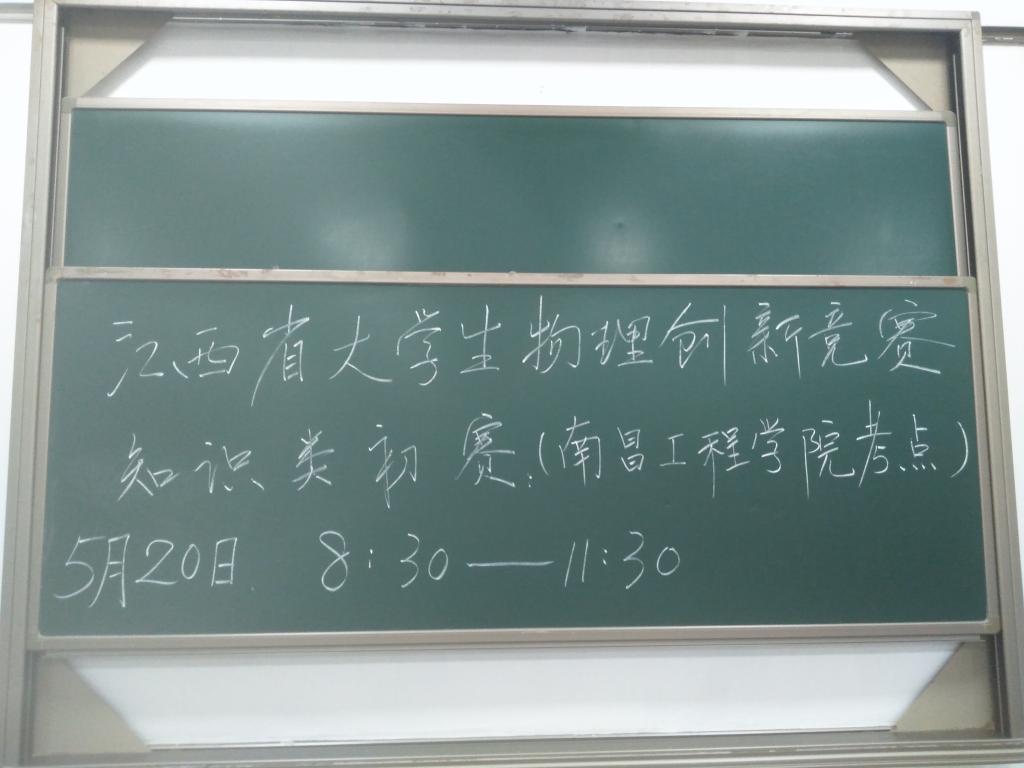 江西省大学生物理创新竞赛
知识类初赛:(南昌工程学院考点)
5月20日. 8:30——11:30